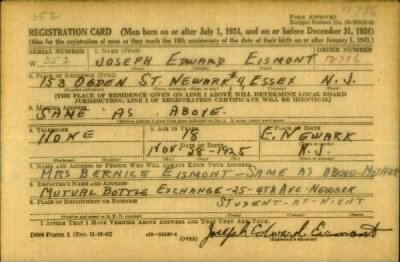 352
12786
FORM APPROVED
REGISTRATION CARD—(Men born on or after July 1, 1924, and on or before December 31, 1924)
(Also for the registration of men as they reach the 18th anniversary of the date of their birth on or after January 1, 1943.)
SERIAL NUMBER 1. NAME (Print) ORDER NUMBER
W 352 JOSEPH EDWARD EISMONT 12786
2. PLACE OF RESIDENCE (Print)
153 OGDEN ST. NEWARK #4 ESSEX N.J.
[THE PLACE OF RESIDENCE GIVEN ON LINE 2 ABOVE WILL DETERMINE LOCAL BOARD
JURISDICTION; LINE 2 OF REGISTRATION CERTIFICATE WILL BE IDENTICAL]
3. MAILING ADDRESS
SAME AS ABOVE.
4. TELEPHONE 5. AGE IN YEARS 6. PLACE OF BIRTH
NONE 18 E. NEWARK
DATE OF BIRTH
NOV 28-1925 N.J.
7. NAME AND ADDRESS OF PERSON WHO WILL ALWAYS KNOW YOUR ADDRESS
MRS BERNICE EISMONT-SAME AS ABOVE-MOTHER
8. EMPLOYER'S NAME AND ADDRESS
MUTUAL BOTTLE EXCHANGE-25-4TH AVE-NEWARK
9. PLACE OF EMPLOYMENT OR BUSINESS STUDENT-AT-NIGHT
I AFFIRM THAT I HAVE VERIFIED ABOVE ANSWERS AND THAT THEY ARE TRUE.
DSS Form 1 (Rev. 11-16-42) (OVER) Joseph Edward Eismont